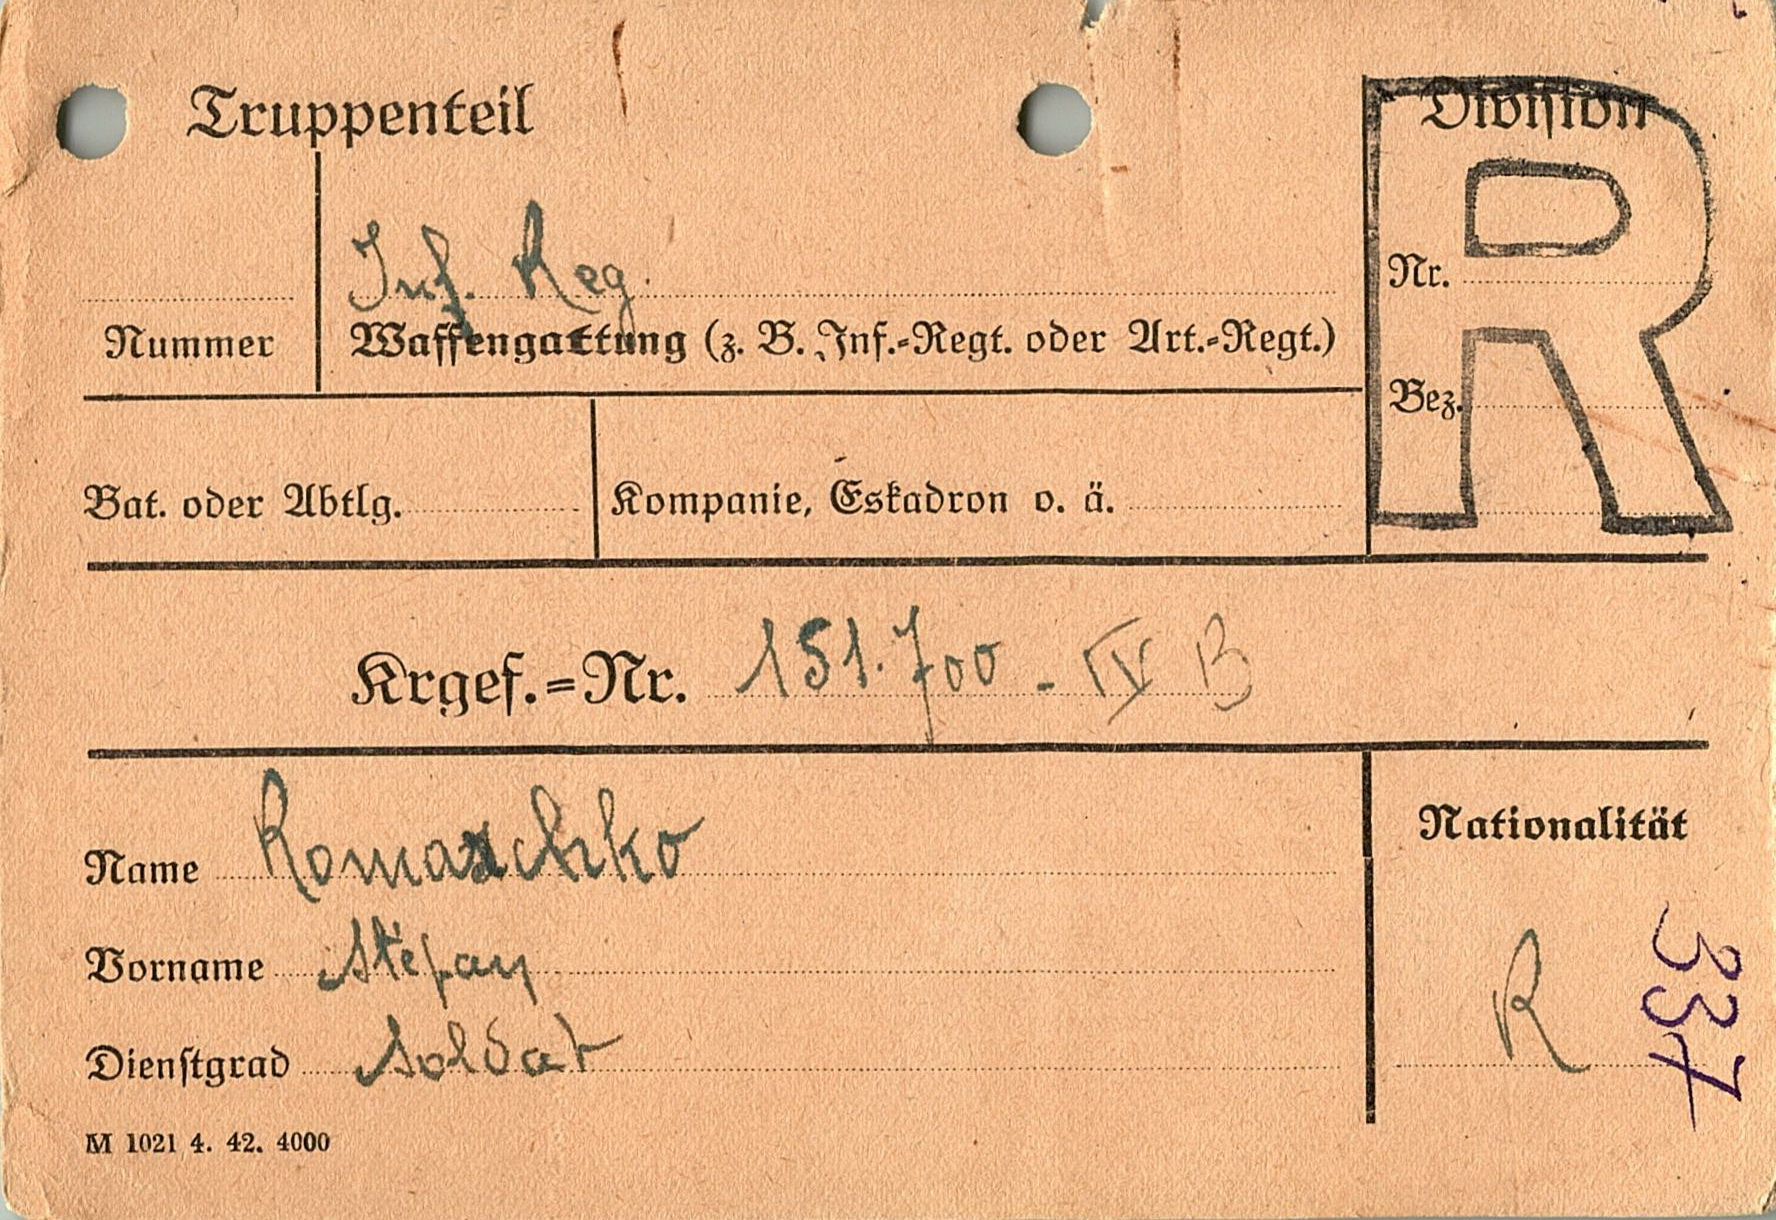 Truppenteil
Division
R
Inf. Reg.
Nr.
Nummer
Waffengattung (z. B. Inf.-Regt. oder Art.-Regt.)
Bez.
Bat. oder Abtlg.
Kompanie, Eskadron o. ä.
Krgef.=Nr. 151.700 - IV B
Name Romaschko
Nationalität
Vorname Stepan
R
337
Dienstgrad Soldat
M 1021 4. 42. 4000